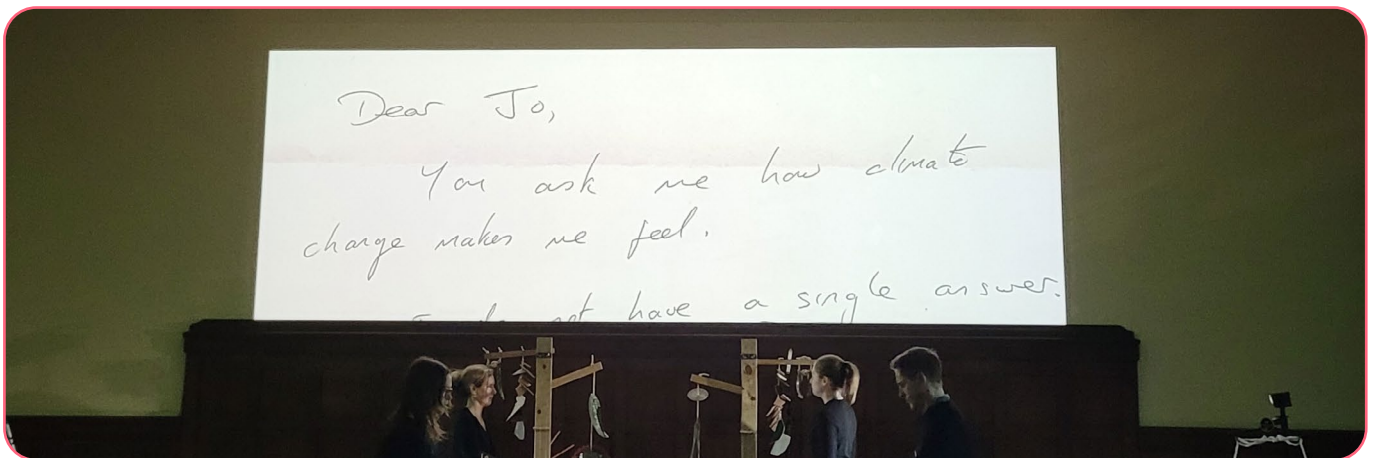 Dear Jo,
You ask me how climate
change makes me feel.
not have a single answer.